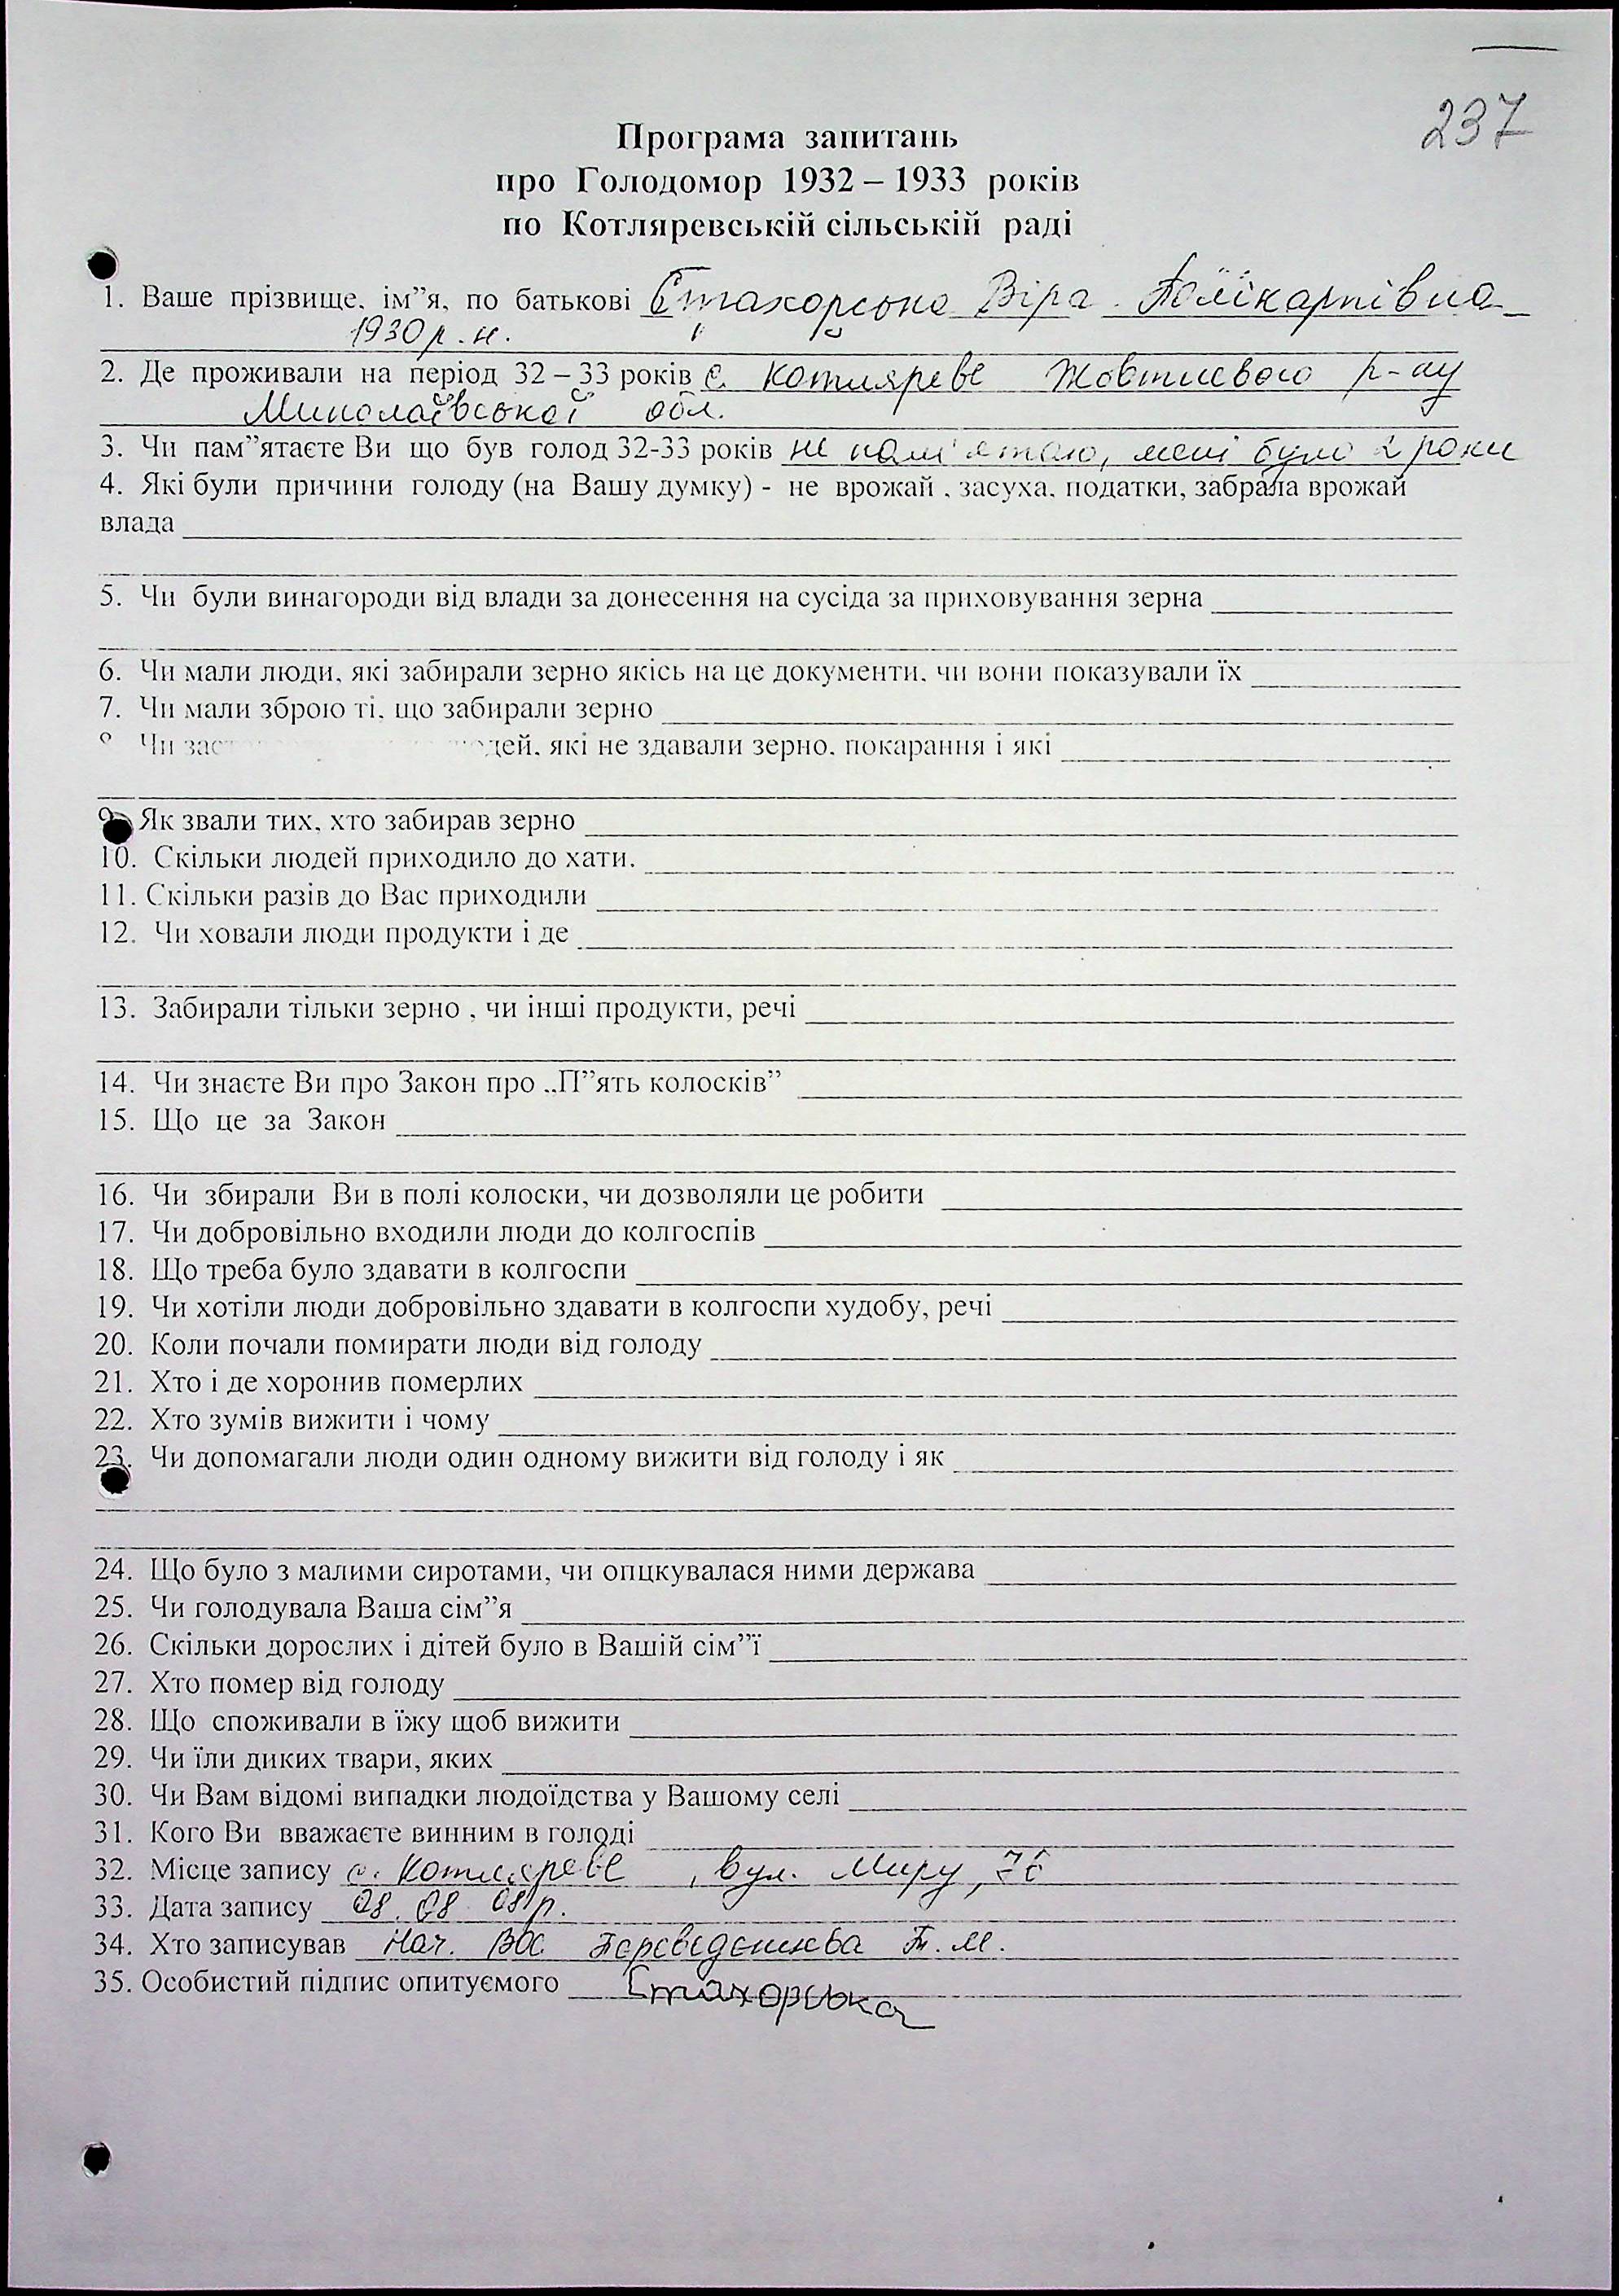 237
Програма запитань
про Голодомор 1932 – 1933 років
по Котляревській сільській раді
1. Ваше прізвище, ім”я, по батькові Стахорська Віра Полікарпівна
1930 р.н.
2. Де проживали на період 32 – 33 років с. Котляреве Жовтневого р-ну
Миколаївської обл.
3. Чи пам”ятаєте Ви що був голод 32-33 років не пам'ятаю, мені було 2 роки
4. Які були причини голоду (на Вашу думку) - не врожай , засуха, податки, забрала врожай
влада
5. Чи були винагороди від влади за донесення на сусіда за приховування зерна
6. Чи мали люди, які забирали зерно якісь на це документи, чи вони показували їх
7. Чи мали зброю ті, що забирали зерно
Чи заст дей, які не здавали зерно, покарання і які
9. Як звали тих, хто забирав зерно
10. Скільки людей приходило до хати.
11. Скільки разів до Вас приходили
12. Чи ховали люди продукти і де
13. Забирали тільки зерно , чи інші продукти, речі
14. Чи знаєте Ви про Закон про „П”ять колосків”
15. Що це за Закон
16. Чи збирали Ви в полі колоски, чи дозволяли це робити
17. Чи добровільно входили люди до колгоспів
18. Що треба було здавати в колгоспи
19. Чи хотіли люди добровільно здавати в колгоспи худобу, речі
20. Коли почали помирати люди від голоду
21. Хто і де хоронив померлих
22. Хто зумів вижити і чому
23. Чи допомагали люди один одному вижити від голоду і як
24. Що було з малими сиротами, чи опцкувалася ними держава
25. Чи голодувала Ваша сім”я
26. Скільки дорослих і дітей було в Вашій сім”ї
27. Хто помер від голоду
28. Що споживали в їжу щоб вижити
29. Чи їли диких твари, яких
30. Чи Вам відомі випадки людоїдства у Вашому селі
31. Кого Ви вважаєте винним в голоді
32. Місце запису с. Котляреве , вул. Миру,
33. Дата запису 08. 08 08 р.
34. Хто записував Нач. ВОС Т. М.
35. Особистий підпис опитуємого Стахорська